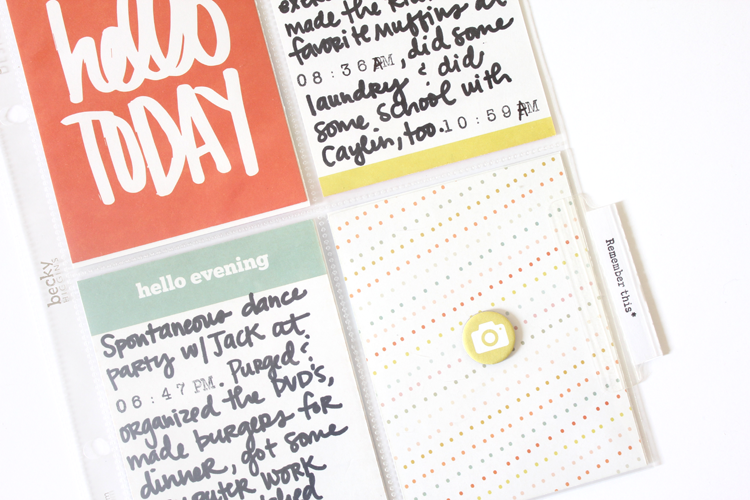 hello
TODAY
made the
favorite muffins at
08:36AM, did some
laundry & did
some school with
Caylin, too. 10:59AM
hello evening
Spontaneous dance
party w/ JACK at
06:47 PM. Purged &
organized the DVD's,
made burgers for
dinner, got some
WORK
Remember this*
becky